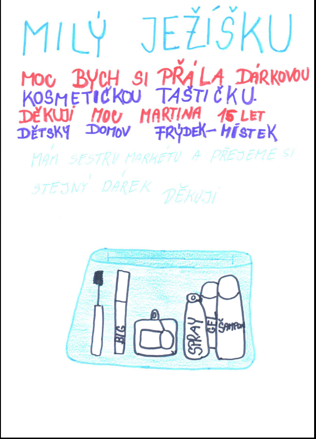 MILÝ JEŽÍŠKU
MOC BYCH SI PŘÁLA DÁRKOVOU
KOSMETIČKOU TAŠTIČKU.
DĚKUJI MOC MARTINA 15 LET
DĚTSKÝ DOMOV FRÝDEK-MÍSTEK
MÁM SESTRU MARKETU A PŘEJEME SI
STEJNÝ DÁREK DĚKUJI
BLG
SPRAY
GEL
ŠAMPON